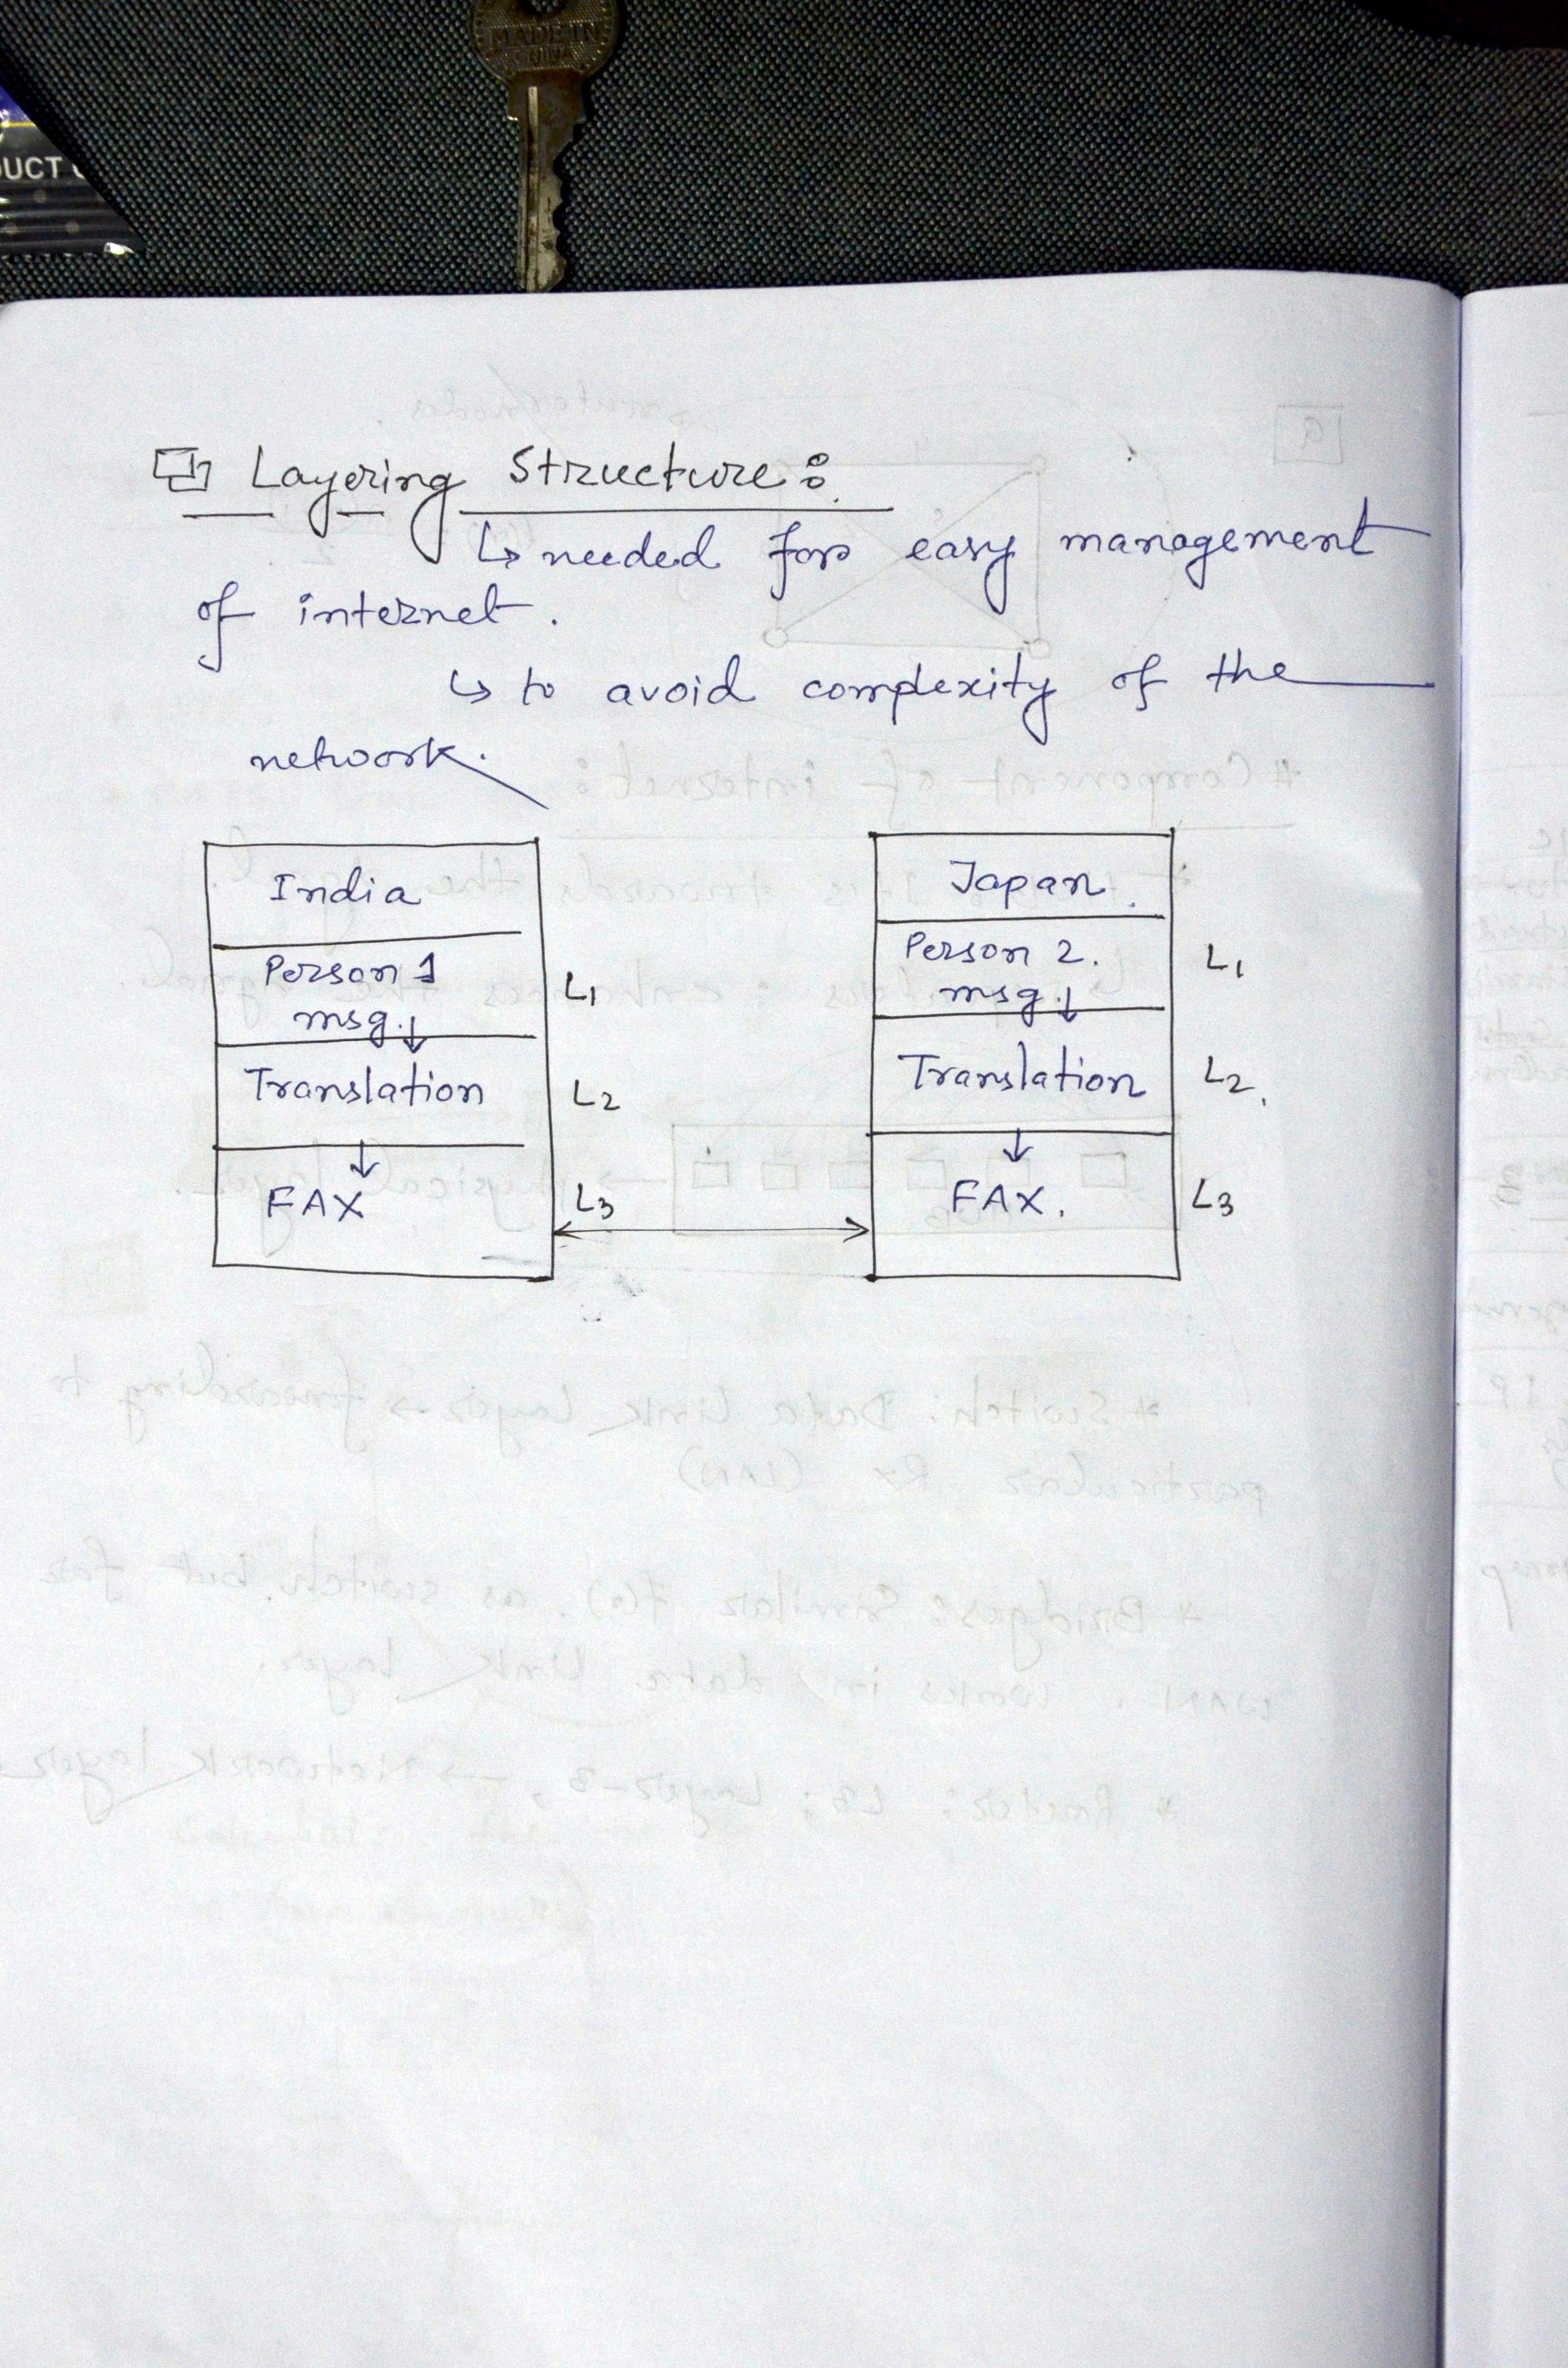 MADE IN
CHINA
UCT
Layering Structure:
↳ needed for easy management
of internet.
↳ to avoid complexity of the
network.
India
Person 1
msg.↓
Translation
↓
FAX
L1
L2
L3
Japan.
Person 2.
msg.↓
Translation
↓
FAX.
L1
L2.
L3